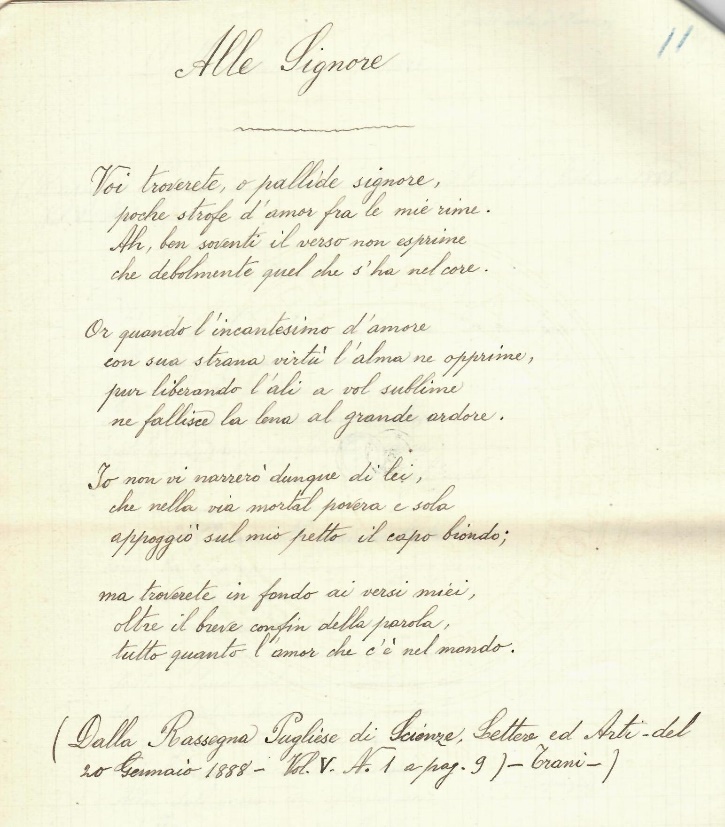 11
Alle Signore
Voi troverete, o pallide signore,
poche strofe d'amor fra le mie rime.
Ah, ben soventi il verso non esprime
che debolmente quel che s'ha nel core.
Or quando l'incantesimo d'amore
con sua strana virtù l'alma ne opprime,
pur liberando l'ali a vol sublime
ne fallisce la lena al grande ardore.
Io non vi narrerò dunque di lei,
che nella via mortal povera e sola
appoggiò sul mio petto il capo biondo;
ma troverete in fondo ai versi miei,
oltre il breve confin della parola,
tutto quanto l'amor che c'è nel mondo.
(Dalla Rassegna Pugliese di Scienze, Lettere ed Arti - del
20 Gennaio 1888 - Vol. V. N. 1 a pag. 9) - Trani -)